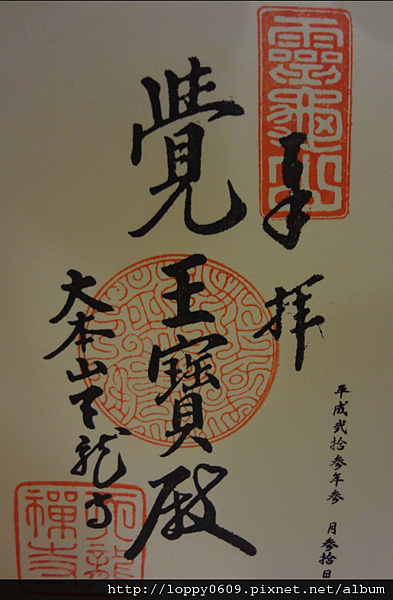 靈龜山
奉拝
平成弐拾参年参月参拾日
覺王寶殿
大本山天龍寺
天龍
禪寺
http://loppy0609.pixnet.net/album